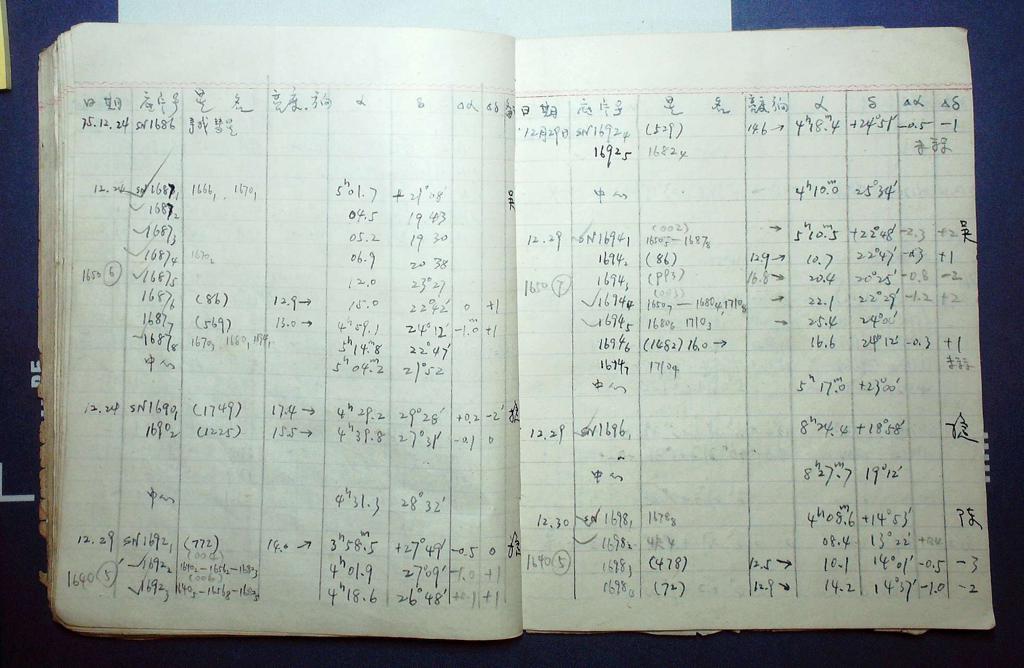 日期 底片号 星名 亮度.方向 α δ Δα Δδ
75.12.24 SN1686 寻找彗星
12.24 SN1687₁ 1666₁ . 1670₁ 5ʰ01.7 +21°08′ 吴
1687₂ 04.5 19 43
1687₃ 05.2 19 30
1687₄ 1670₂ 06.9 20 38
1650⑥ 1687₅ 12.0 23°27
1687₆ (86) 12.9→ 15.0 22°42′ 0 +1
1687₇ (569) 13.0→ 4ʰ59.1 24°12′ -1.0ᵐ +1
1687₈ 1670₃ 1680₁ 5ʰ14ᵐ8 22°47′
中心 5ʰ04ᵐ2 21°52
12.24 SN1690₁ (1749) 17.4→ 4ʰ29.2 29°28′ +0.2 -2′
1690₂ (1225) 15.5→ 4ʰ39.8 27°31′ -0.1 0
中心 4ʰ31.3 28°32′
12.29 SN1692₁ (772) 14.0→ 3ʰ58ᵐ5 +27°49′ -0.5 0
1640⑤ 1692₂ 4ʰ01.9 27°09′ -1.0 +1
1692₃ (006) 4ʰ18.6 26°48′ +1
日期 底片号 星名 亮度 方向 α δ Δα Δδ
12月29日 SN1692₄ (529) 14.6→ 4ʰ18ᵐ.4 +24°51′ -0.5 -1
1692₅ 1682₄
中心 4ʰ10.0ᵐ 25°34′
(002)
12.29 SN1694₁ 1650₅-1687₈ → 5ʰ10ᵐ.5 +22°48′ -2.3 +2 吴
1694₂ (86) 12.9→ 10.7 22°47′ -0.3 +1
1650⑦ 1694₃ (993) 16.8→ 20.4 20°25′ -0.8 -2
(003)
1694₄ 1650₇-1680₄,1710₈ → 22.1 22°29′ -1.2 +2
1694₅ 1680₆ 1710₃ → 25.4 24°00′
1694₆ (1482) 16.0→ 16.6 24°12′ -0.3 +1
1694₇ 1710₄
中心 5ʰ17.0ᵐ +23°00′
12.29 SN1696₁ 8ʰ24ᵐ.4 +18°58′
中心 8ʰ27ᵐ.7 19°12′
12.30 SN1698₁ 1678₈ 4ʰ08ᵐ.6 +14°53′ 陈
1698₂ 08.4 13°22′
1640⑤ 1698₃ (478) 12.5→ 10.1 14°01′ -0.5 -3
(72) 12.9→ 14.2 14°37′ -1.0 -2